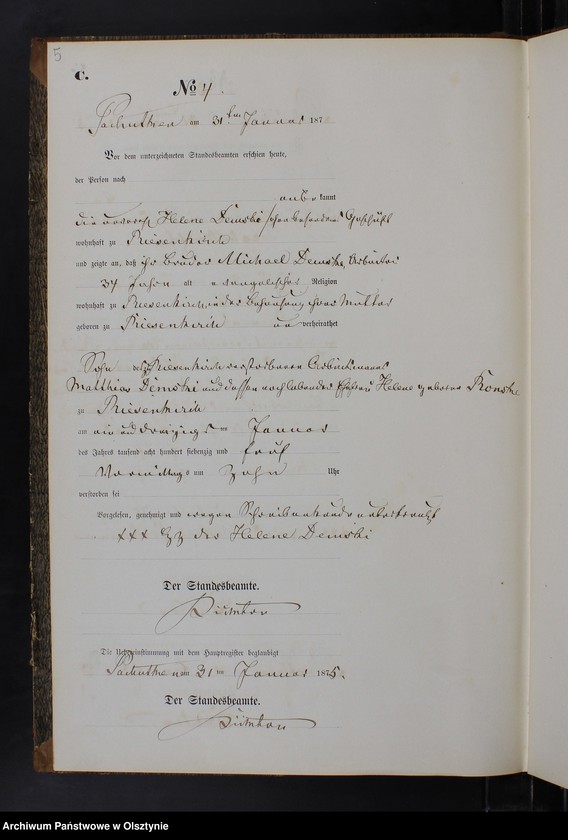 5
C.
No 4.
Pachutken am 31ten Januar 187
Vor dem unterzeichneten Standesbeamten erschien heute,
der Person nach
unbe kannt
die unvereh Helene Demski
wohnhaft zu Riesenkirch
und zeigte an, daß ihr Bruder Michael Demski, Arbeiter
34 Jahre alt evangelischer Religion
wohnhaft zu Riesenkirch, in der Behausung ihrer Mutter
geboren zu Riesenkirch un verheirathet
Sohn des zu Riesenkirch verstorbenen Arbeitsmanns
Matthias Demski und dessen nachlebender Ehefrau Helene geborne Konski
zu Riesenkirch
am ein und dreizigsten Januar
des Jahres tausend acht hundert siebenzig und fünf
Vormittags um Zehn Uhr
verstorben sei
Vorgelesen, genehmigt und wegen Schreibensunkunde unterkreuzt
+++ Hz der Helene Demski
Der Standesbeamte.
Die Uebereinstimmung mit dem Hauptregister beglaubigt
Pachutken am 31ten Januar 1875.
Der Standesbeamte.
Archiwum Państwowe w Olsztynie